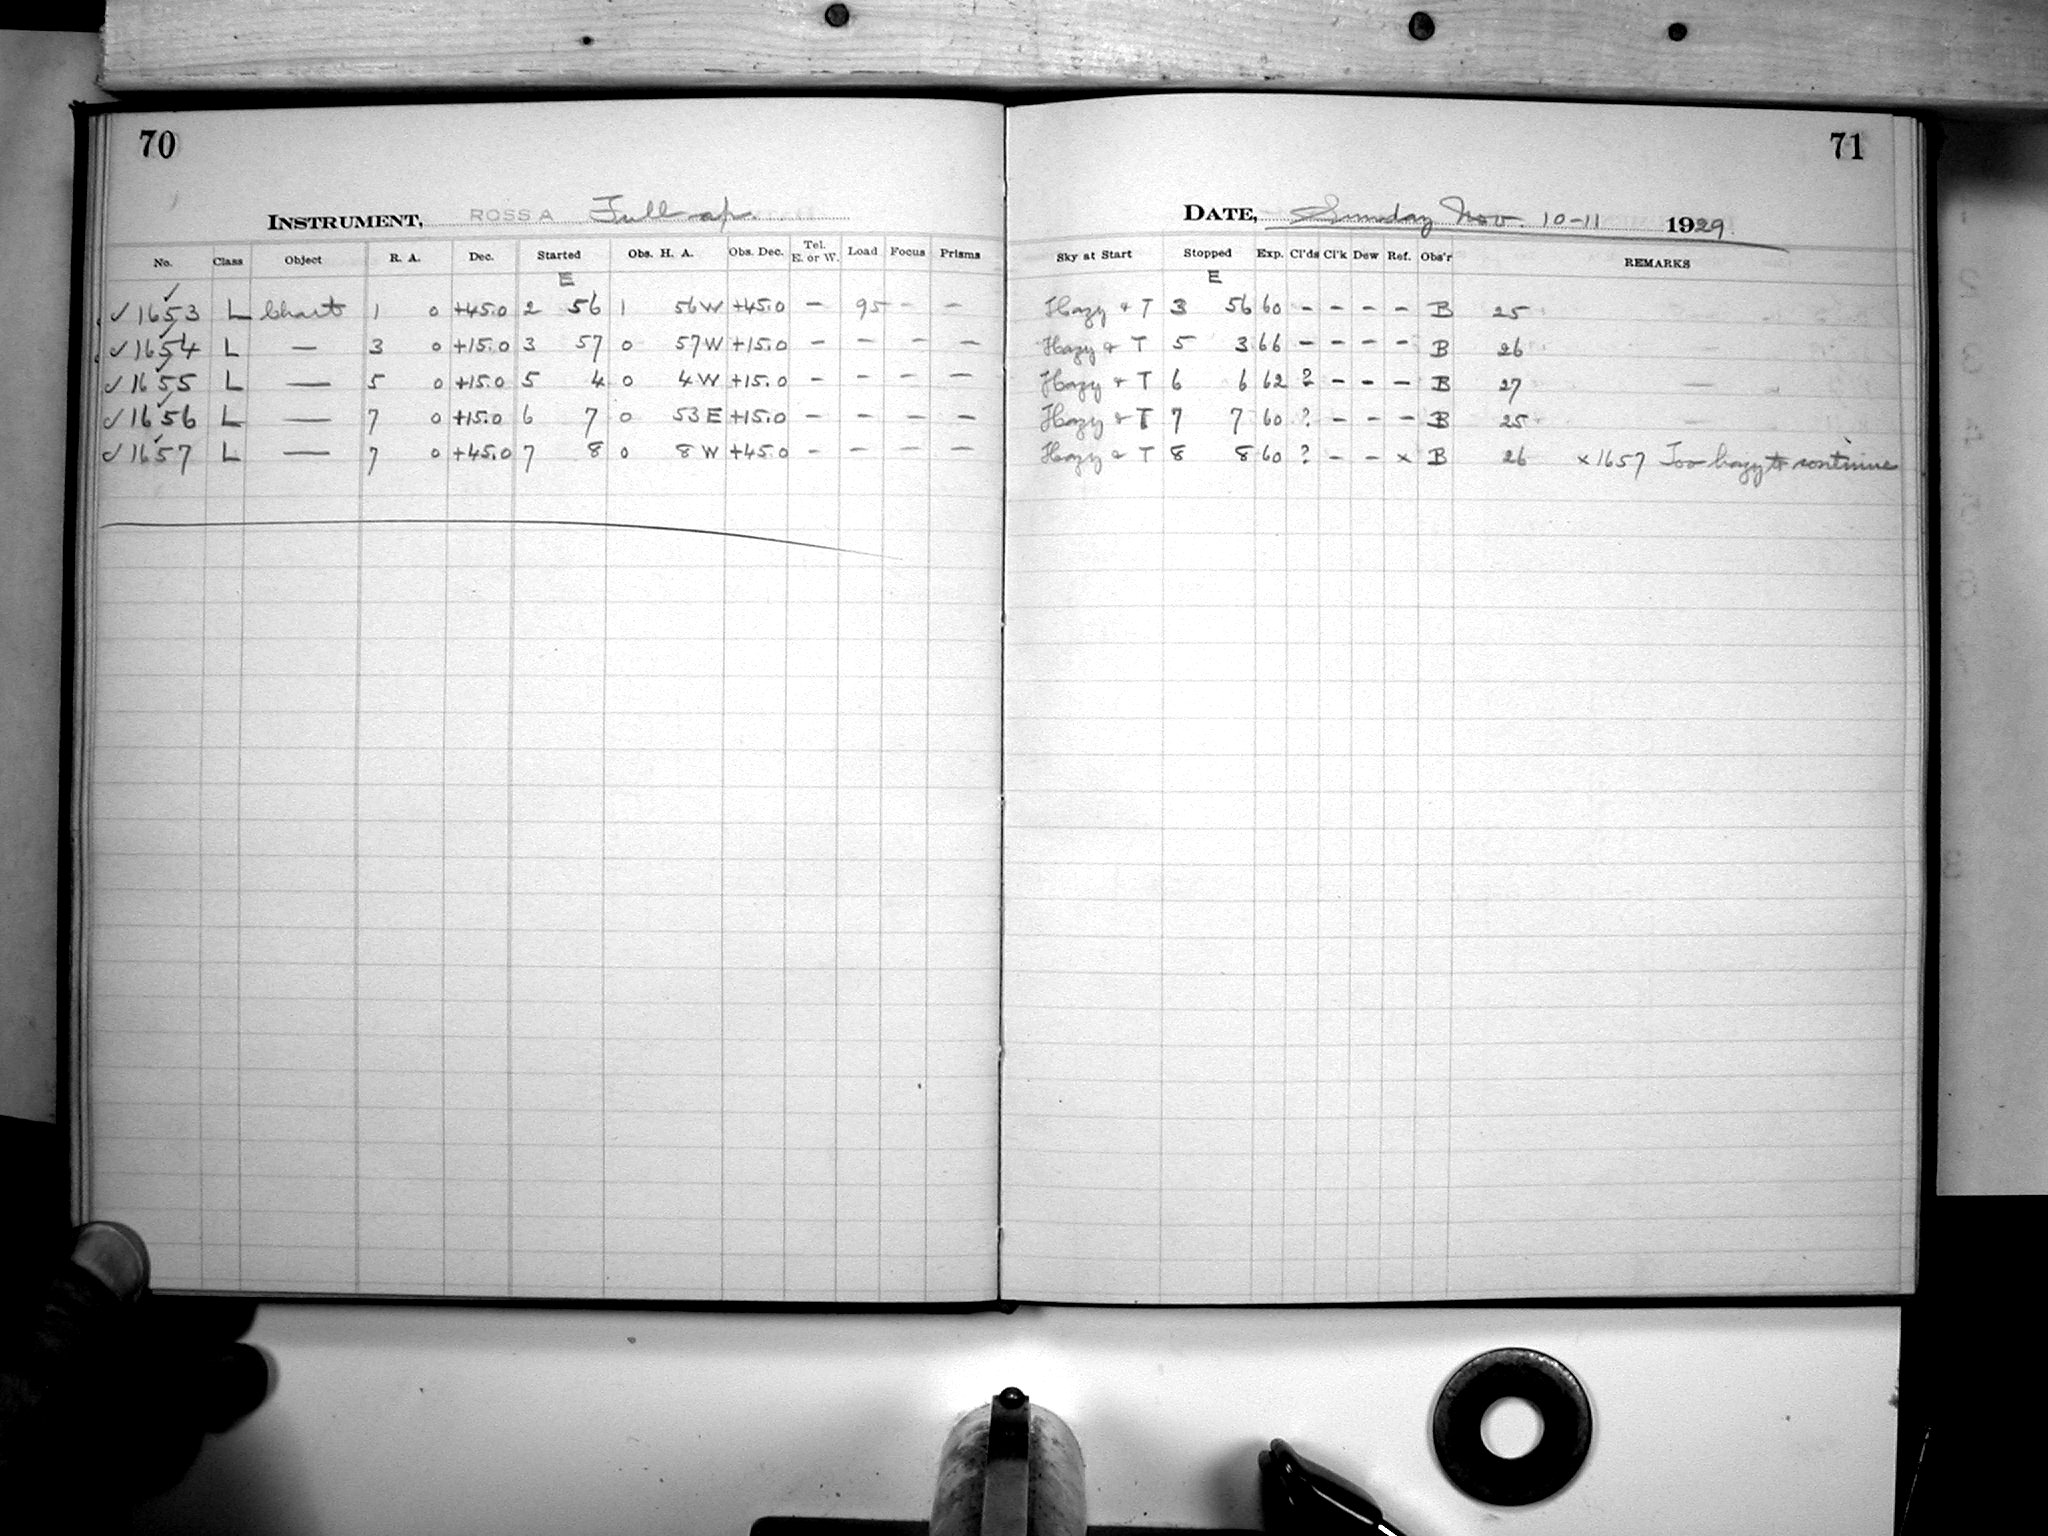 70
INSTRUMENT, ROSS A Full ap.
No. Class Object R. A. Dec. Started Obs. H. A. Obs. Dec. Tel. E. or W. Load Focus Prisms
E
✓ 1653 L Chart 1 0 +45.0 2 56 1 56 W +45.0 – 95 – –
✓ 1654 L — 3 0 +15.0 3 57 0 57 W +15.0 – – – –
✓ 1655 L — 5 0 +15.0 5 4 0 4 W +15.0 – – – –
✓ 1656 L — 7 0 +15.0 6 7 0 53 E +15.0 – – – –
✓ 1657 L — 7 0 +45.0 7 8 0 8 W +45.0 – – – –
71
DATE, Sunday Nov. 10-11 1929
Sky at Start Stopped Exp. Cl'ds Cl'k Dew Ref. Obs'r REMARKS
E
Hazy + T 3 56 60 – – – – B 25
Hazy + T 5 3 66 – – – – B 26
Hazy + T 6 6 62 ? – – – B 27
Hazy + T 7 7 60 ? – – – B 25
Hazy + T 8 8 60 ? – – x B 26 x 1657 Too hazy to continue